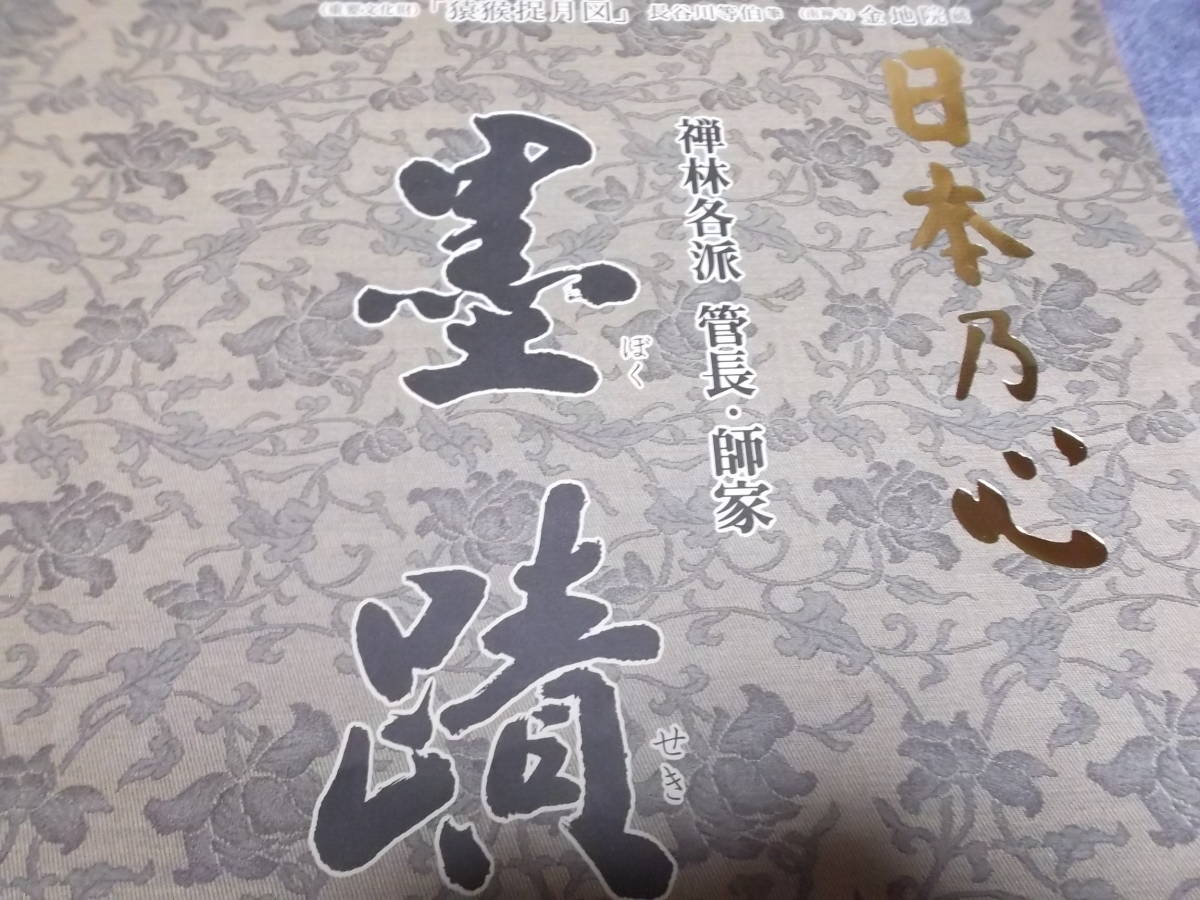 (重要文化財) 「猿猴捉月図」 長谷川等伯筆 (南禅寺) 金地院蔵
日本乃心
禅林各派 管長・師家
墨蹟
ぼく
せき